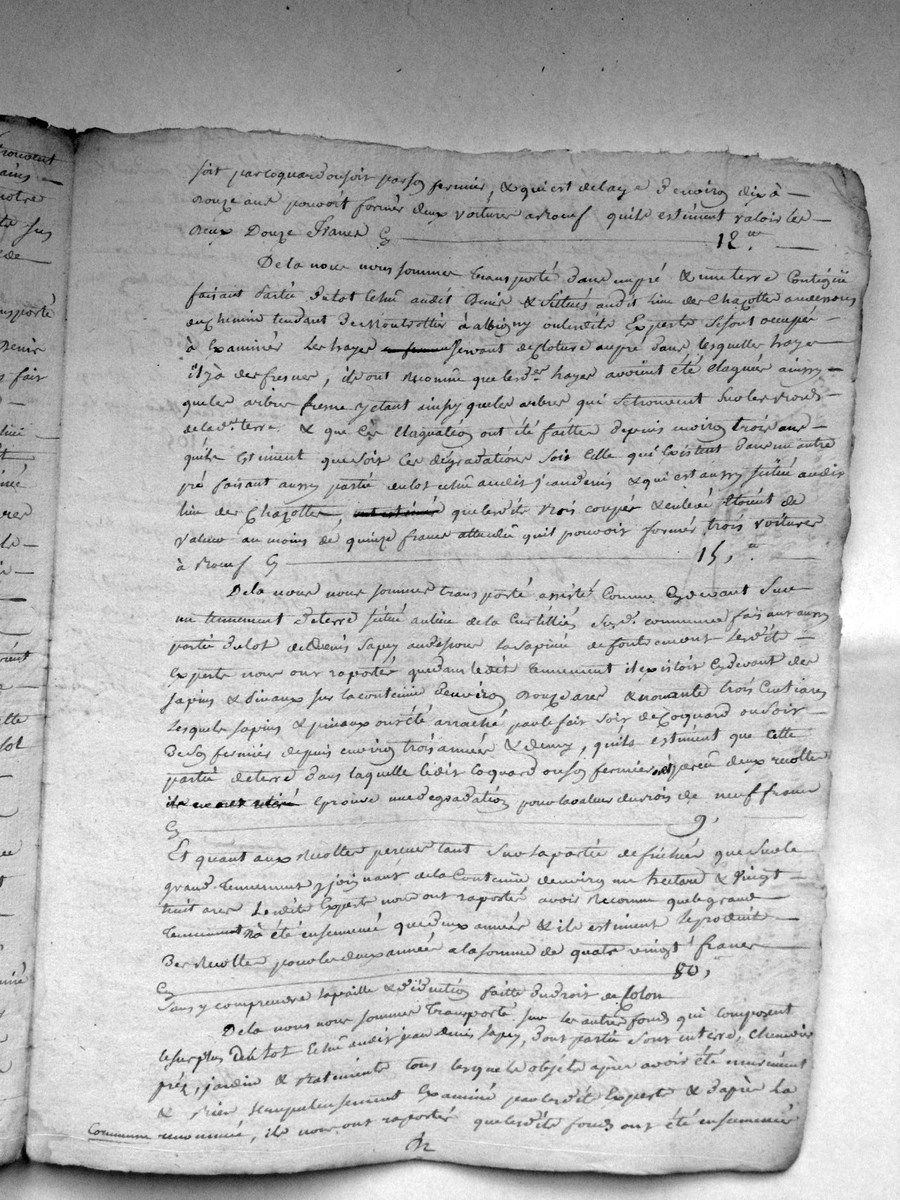 soit par Coquard ou soit par son fermier, & qui est de l'age d'environ dix à
onze ans pouvoit former deux voiture a Boeuf qu'ils estiment valoir les
deux Douze francs 12.
De la nous nous sommes transporté dans un pré & une terre Contigüe
faisant partie du lot echu audit Denis & situés audit lieu des Chazotte au dessous
du chemin tendant de Montrottier à albigny ou lesdits Experts se sont occupés
à Examiner les hayes servant de cloture au pré dans lesquelles hayes
il y à des fresnes, ils ont reconnu que lesdes hayes avoint été élaguées ainsy
que les arbres fresne y étant ainsy que les arbres qui se trouvent sur les bords
de la dte terre. & que ces élaguations ont été faittes depuis environ trois ans
qu'ils estiment que soit ces dégradations soit celle qui existent dans un autre
pré faisant aussy partie du lot echu audit jean denis & qui est aussy situé audit
lieu des Chazotte, que lesdits bois coupés & enlevé étoint de
valeur au moins de quinze francs attendu qu'il pouvoit former trois voitures
à Boeuf 15,
De la nous nous sommes transporté assisté comme cy devant sur
un tennement de terre situé au lieu de la susd. commune faisant aussy
partie du lot de Denis Sapey au dessous la sapinée de fontemont lesdits
Experts nous ont raporté que dans ledit tennement il existoit cy devant des
sapins & pinaux sur la contenue d'environ onze ares & nonante trois Centiares
lesquels sapins & pinaux ont été arraché par le fait soit de Coquard ou soit
de son fermier depuis environ trois années & demy, qu'ils estiment que cette
partie de terre dans laquelle ledit Coquard ou son fermier ont perçu deux recoltes
éprouve une degradation pour la valeur du bois de neuf francs
9,
Et quant aux recoltes perçues tant sur la partie defrichée que sur le
grand tennement y joignant de la Contenue d'environ un hectare & vingt
huit ares lesdits Experts nous ont raporté avoir reconnu que le grand
tennement n'à été ensemencé que deux années & ils estiment le produit
des recoltes pour les deux années a la somme de quatre vingt francs
80,
sans y comprendre la paille & déduction faitte du droit de Colon
De la nous nous sommes transporté sur les autres fonds qui composent
le surplus du lot echu audit jean Denis Sapey, dont partie sont en terre, chenevier
préz, jardin & batiments tous lesquels objets après avoir été murement
& bien scrupuleusement Examiné par lesdits Experts & d'après la
Commune renommée, ils nous ont raportés que lesdits fonds ont été ensemencés